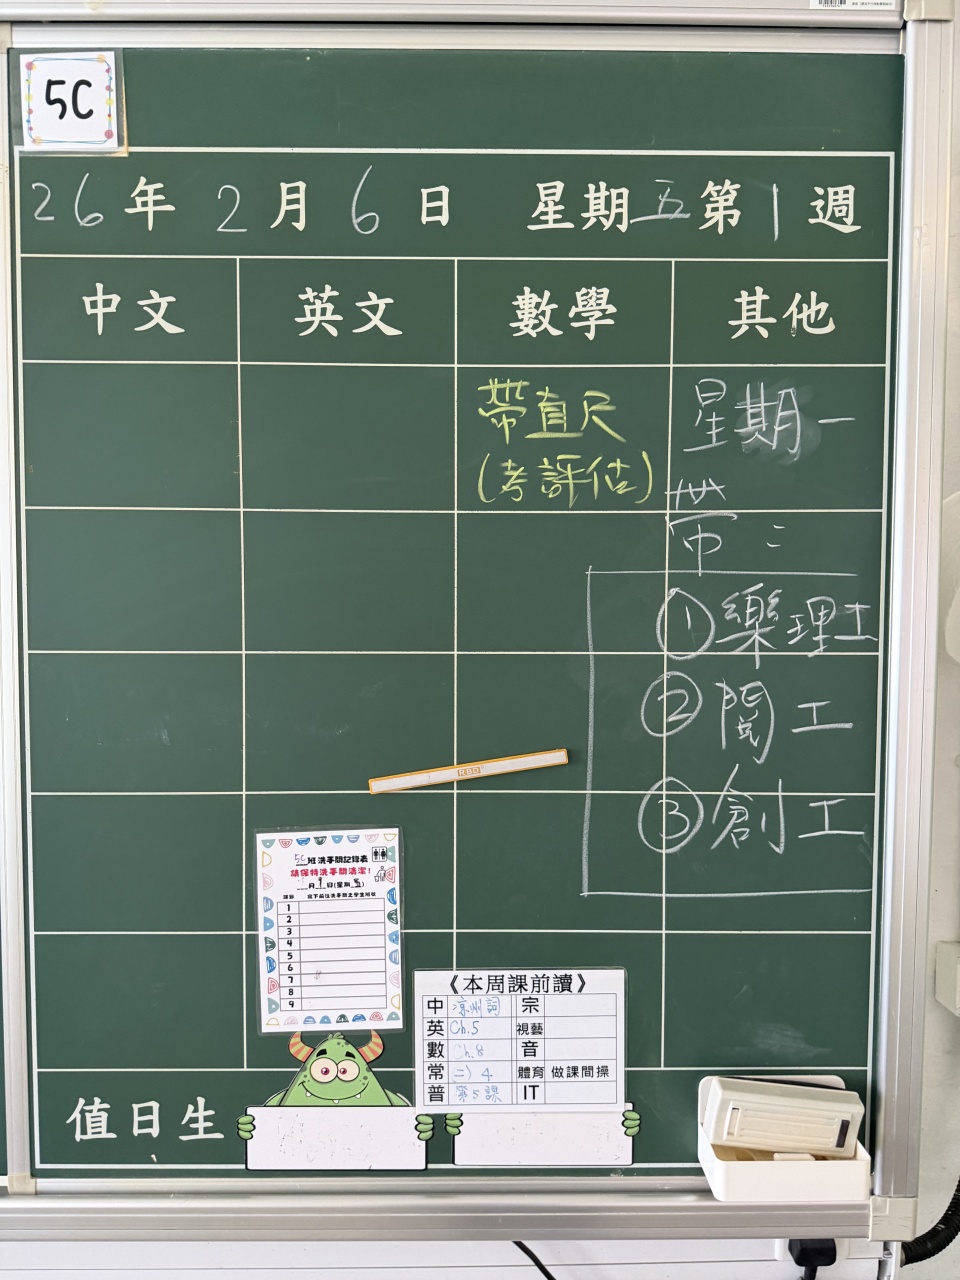 5C
26年2月6日 星期五第1週
中文 英文 數學 其他
帶直尺
(考評估)
星期一
帶:
①樂理工
②閱工
③創工
RBD
5C班洗手間記錄表
請保持洗手間清潔!
月9日(星期五)
課節 寫下前往洗手間之學生班號
1
2
3
4
5
6
7
8
9
《本周課前讀》
中 涼州詞 宗
英 Ch.5 視藝
數 Ch.8 音
常 二) 4 體育 做課間操
普 第5課 IT
值日生